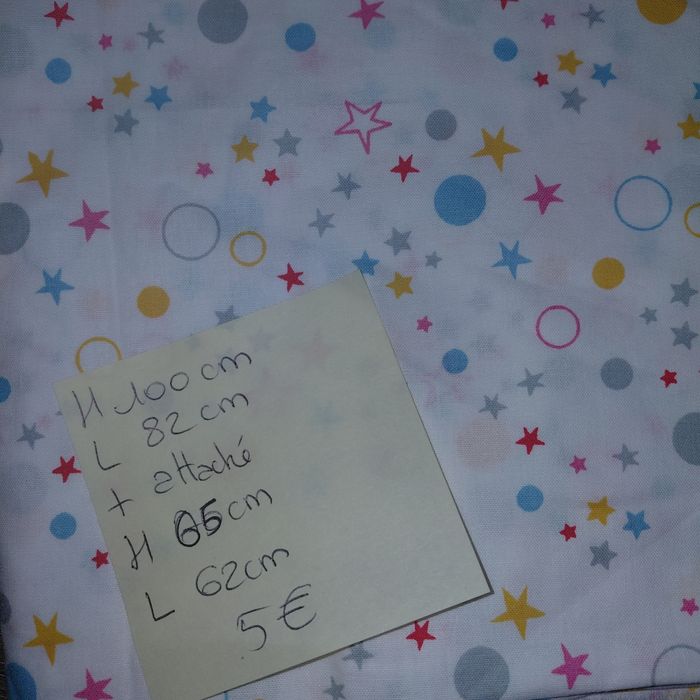 H 100 cm
L 82 cm
+ attaché
H 65 cm
L 62 cm
5 €